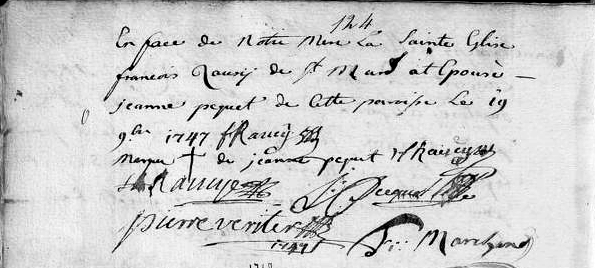 124
En face de Notre Mere La Sainte Eglise
francois Raucy de St Mard at Epousé
jeanne pequet de Cette paroisse Le 19
9bre 1747 f Raucy
Marque de jeanne pequet
Raucy J: Pecquet
pierre veriter
1747 Marchand